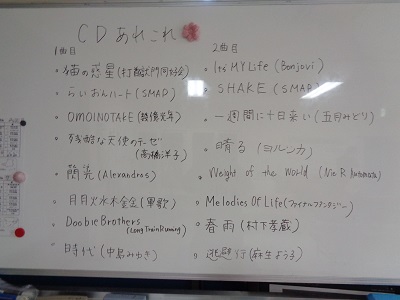 CDあれこれ
1曲目
・猫の惑星(打首獄門同好会)
・らいおんハート(SMAP)
・OMOINOTAKE(幾億光年)
・残酷な天使のテーゼ
(高橋洋子)
・閃光(Alexandros)
・月月火水木金金(軍歌)
・Doobie Brothers
(Long Train Running)
・時代(中島みゆき)
2曲目
・Its MY Life (Bonjovi)
・SHAKE (SMAP)
・一週間に十日来い(五月みどり)
・晴る(ヨルシカ)
・Weight of the World (Nie R
・Melodies Of Life(ファイナルファンタジー)
・春雨(村下孝蔵)
・逃避行(麻生よう子)